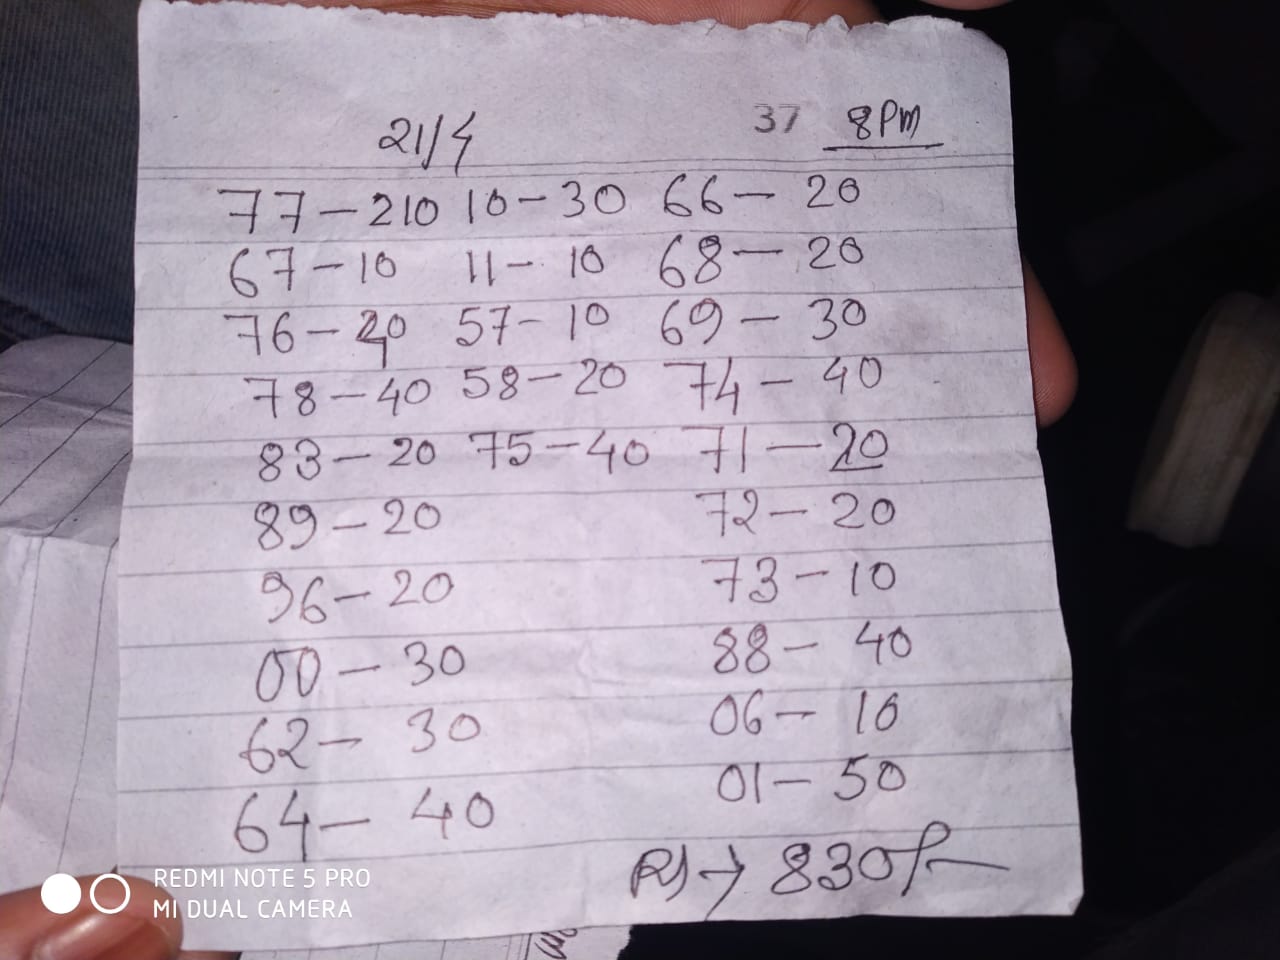 21/4 37 8PM
77-210 10-30 66-20
67-10 11-10 68-20
76-40 57-10 69-30
78-40 58-20 74-40
83-20 75-40 71-20
89-20 72-20
96-20 73-10
00-30 88-40
62-30 06-10
64-40 01-50
RS→830/-
REDMI NOTE 5 PRO
MI DUAL CAMERA